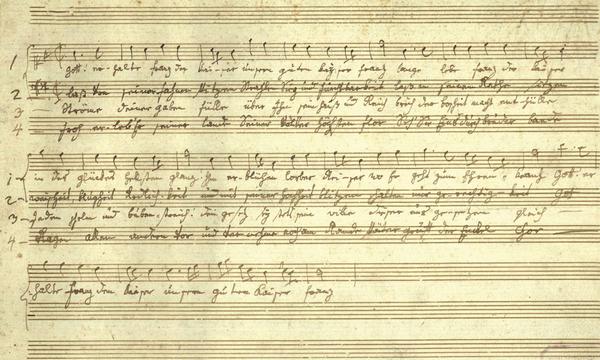 1 gott! er-halte franz den kai-ser unsern guten kayser franz lange lebe franz der kaiser
2 laß von seiner fahnen spitzen Strahlen Sieg und furchtbarkeit laß in seinem Rathe sitzen
3 Ströme deiner gaben fülle über Ihn sein Haus und Reich brich der bosheit macht ent-hülle
4 froh er-leb Er seiner lande Seiner Völker höchsten flor
1 in des glückes hellstem glanz Ihm er-blühen lorber Rei-ser wo Er geht zum Ehren-kranz gott! er
2 weisheit klugheit Redlich-keit und mit seiner hoheit blitzen schalten nur ge-rechtig-keit gott
3 jeden schelm und buben-streich dein ge-setz sey stets sein wille dieser uns ge-setzen gleich
4 Klagen allen andern vor und ver-nehme noch am Rande später gruft der Enkel Chor
halte franz den kaiser unsern guten kaiser franz